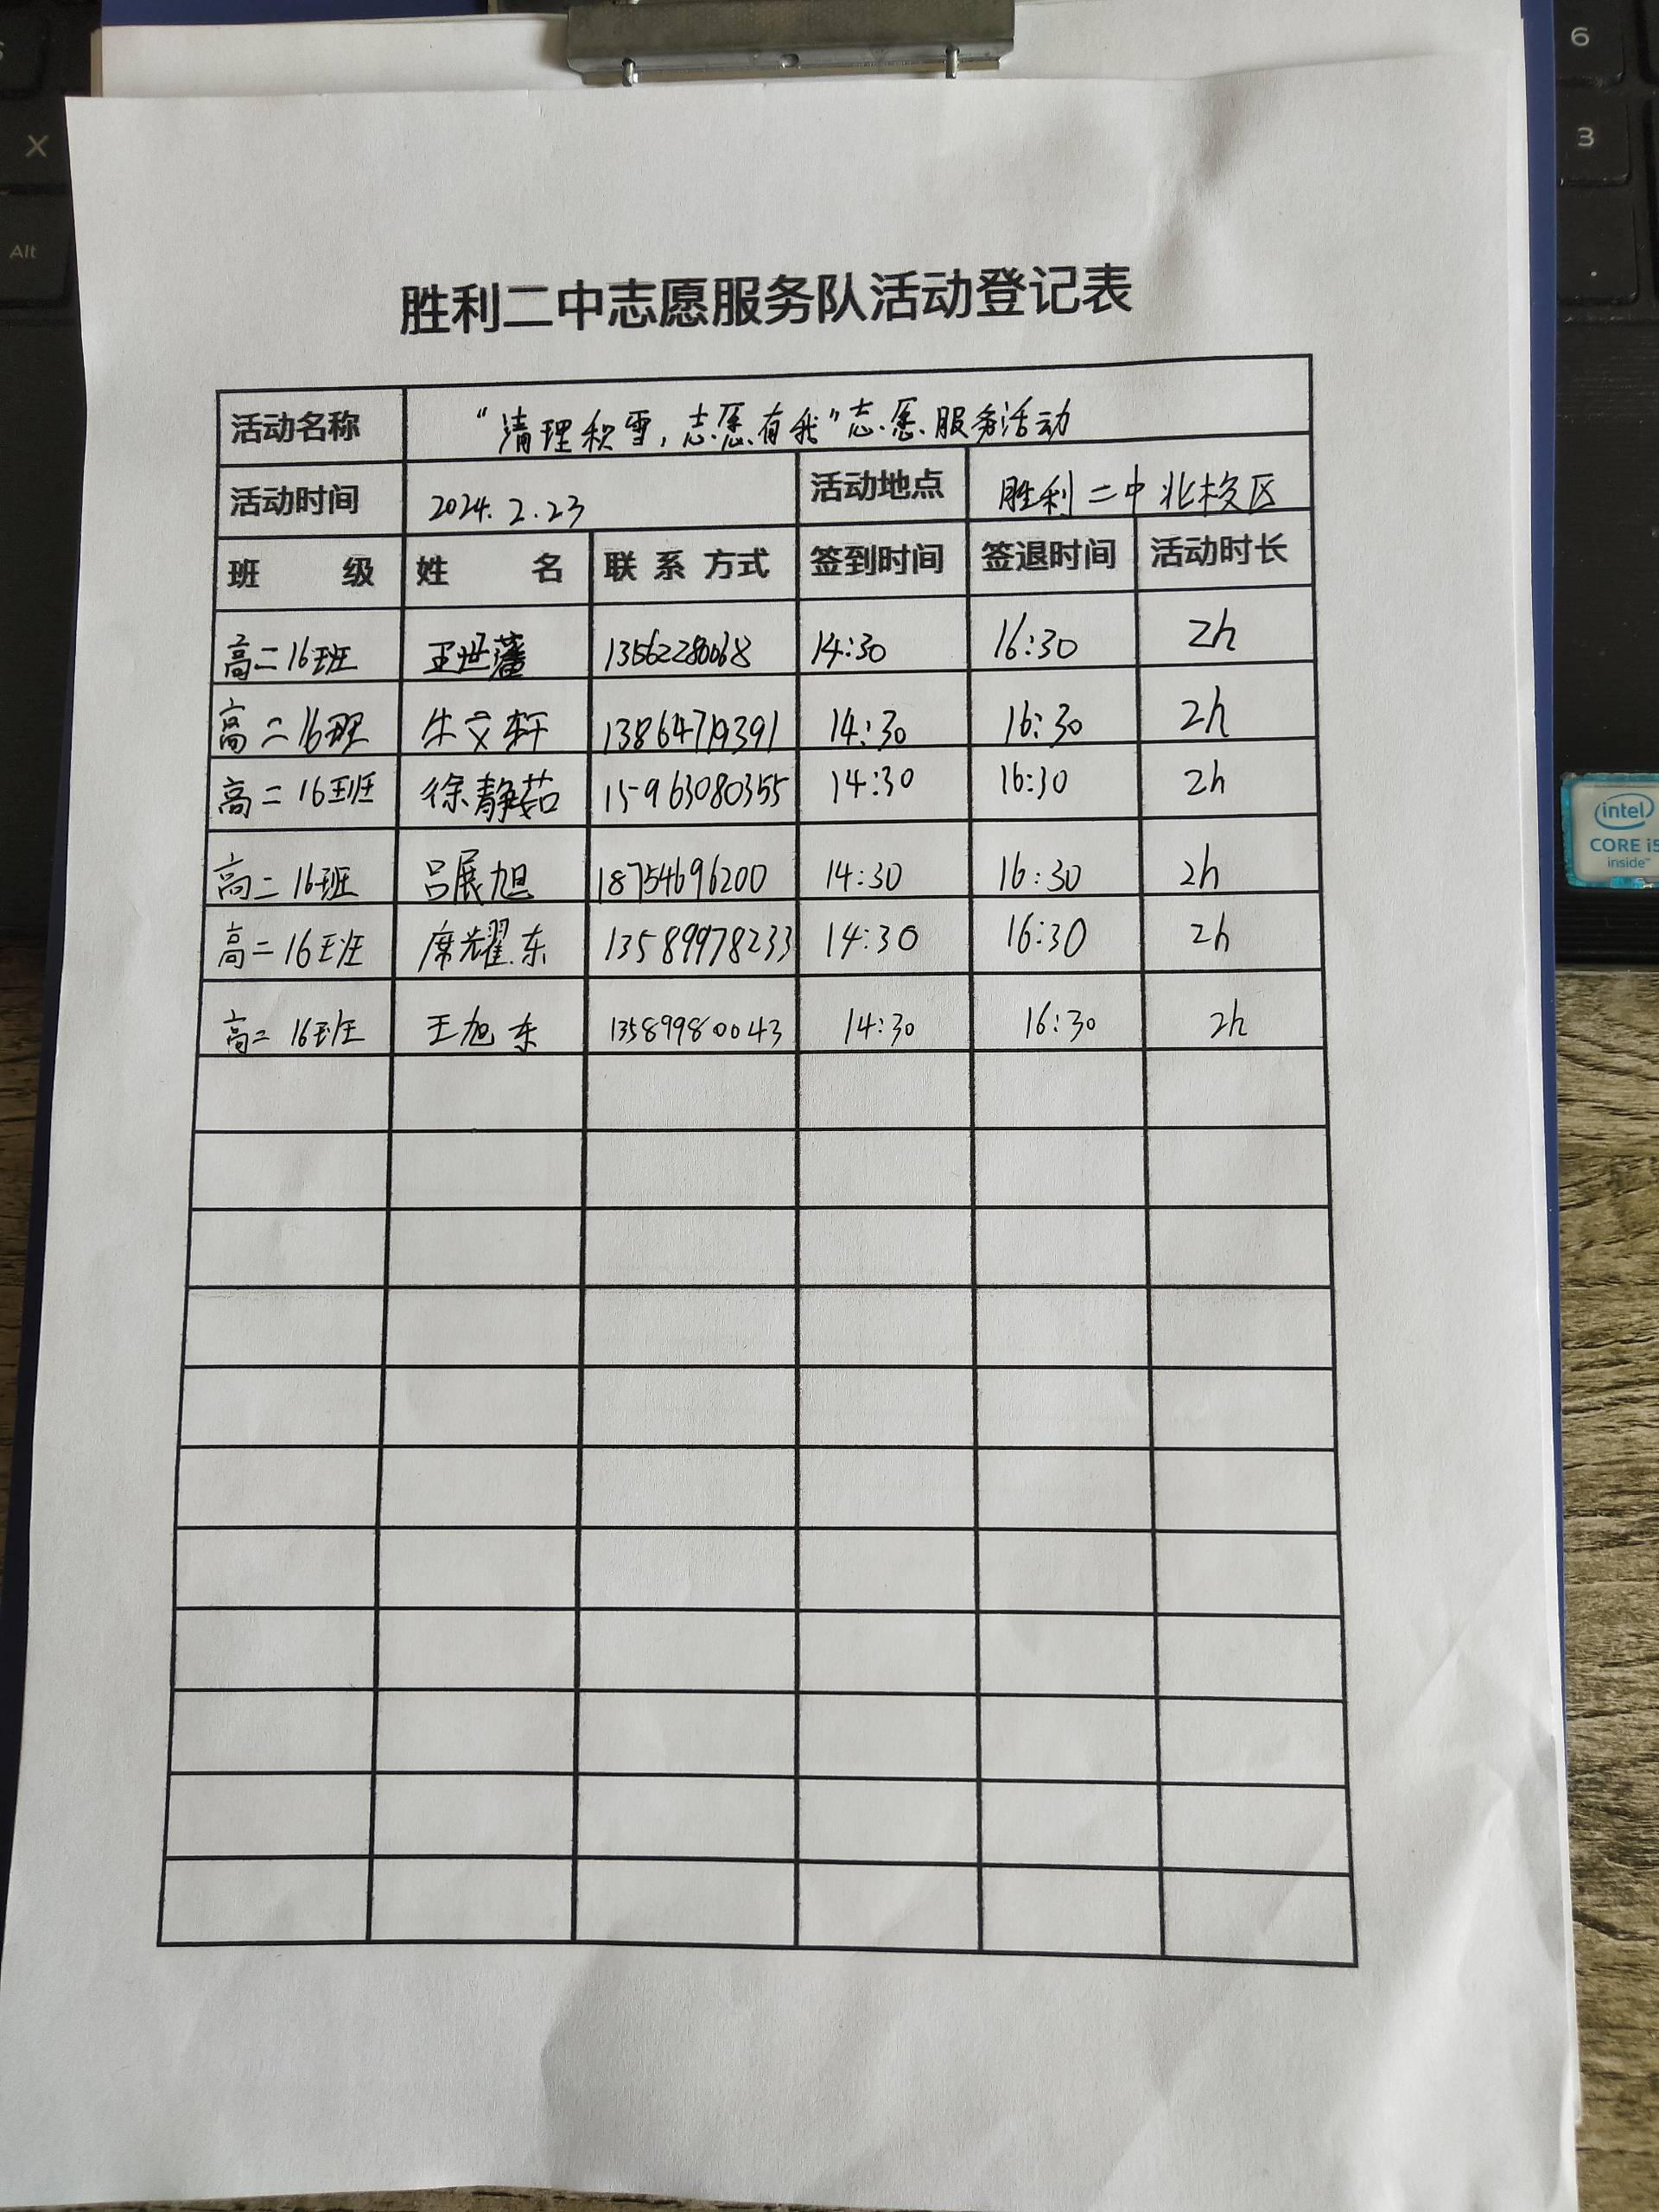 胜利二中志愿服务队活动登记表
活动名称 “清理积雪,志愿有我”志愿服务活动
活动时间 2024.2.23 活动地点 胜利二中北校区
班 级 姓 名 联系方式 签到时间 签退时间 活动时长
高二16班 王世藩 13562280068 14:30 16:30 2h
高二16班 牛文轩 13864719391 14:30 16:30 2h
高二16班 徐静茹 15963080355 14:30 16:30 2h
高二16班 吕展旭 18754696200 14:30 16:30 2h
高二16班 席耀东 13589978233 14:30 16:30 2h
高二16班 王旭东 13589980043 14:30 16:30 2h
X
Alt
6
3
intel
CORE i5
inside